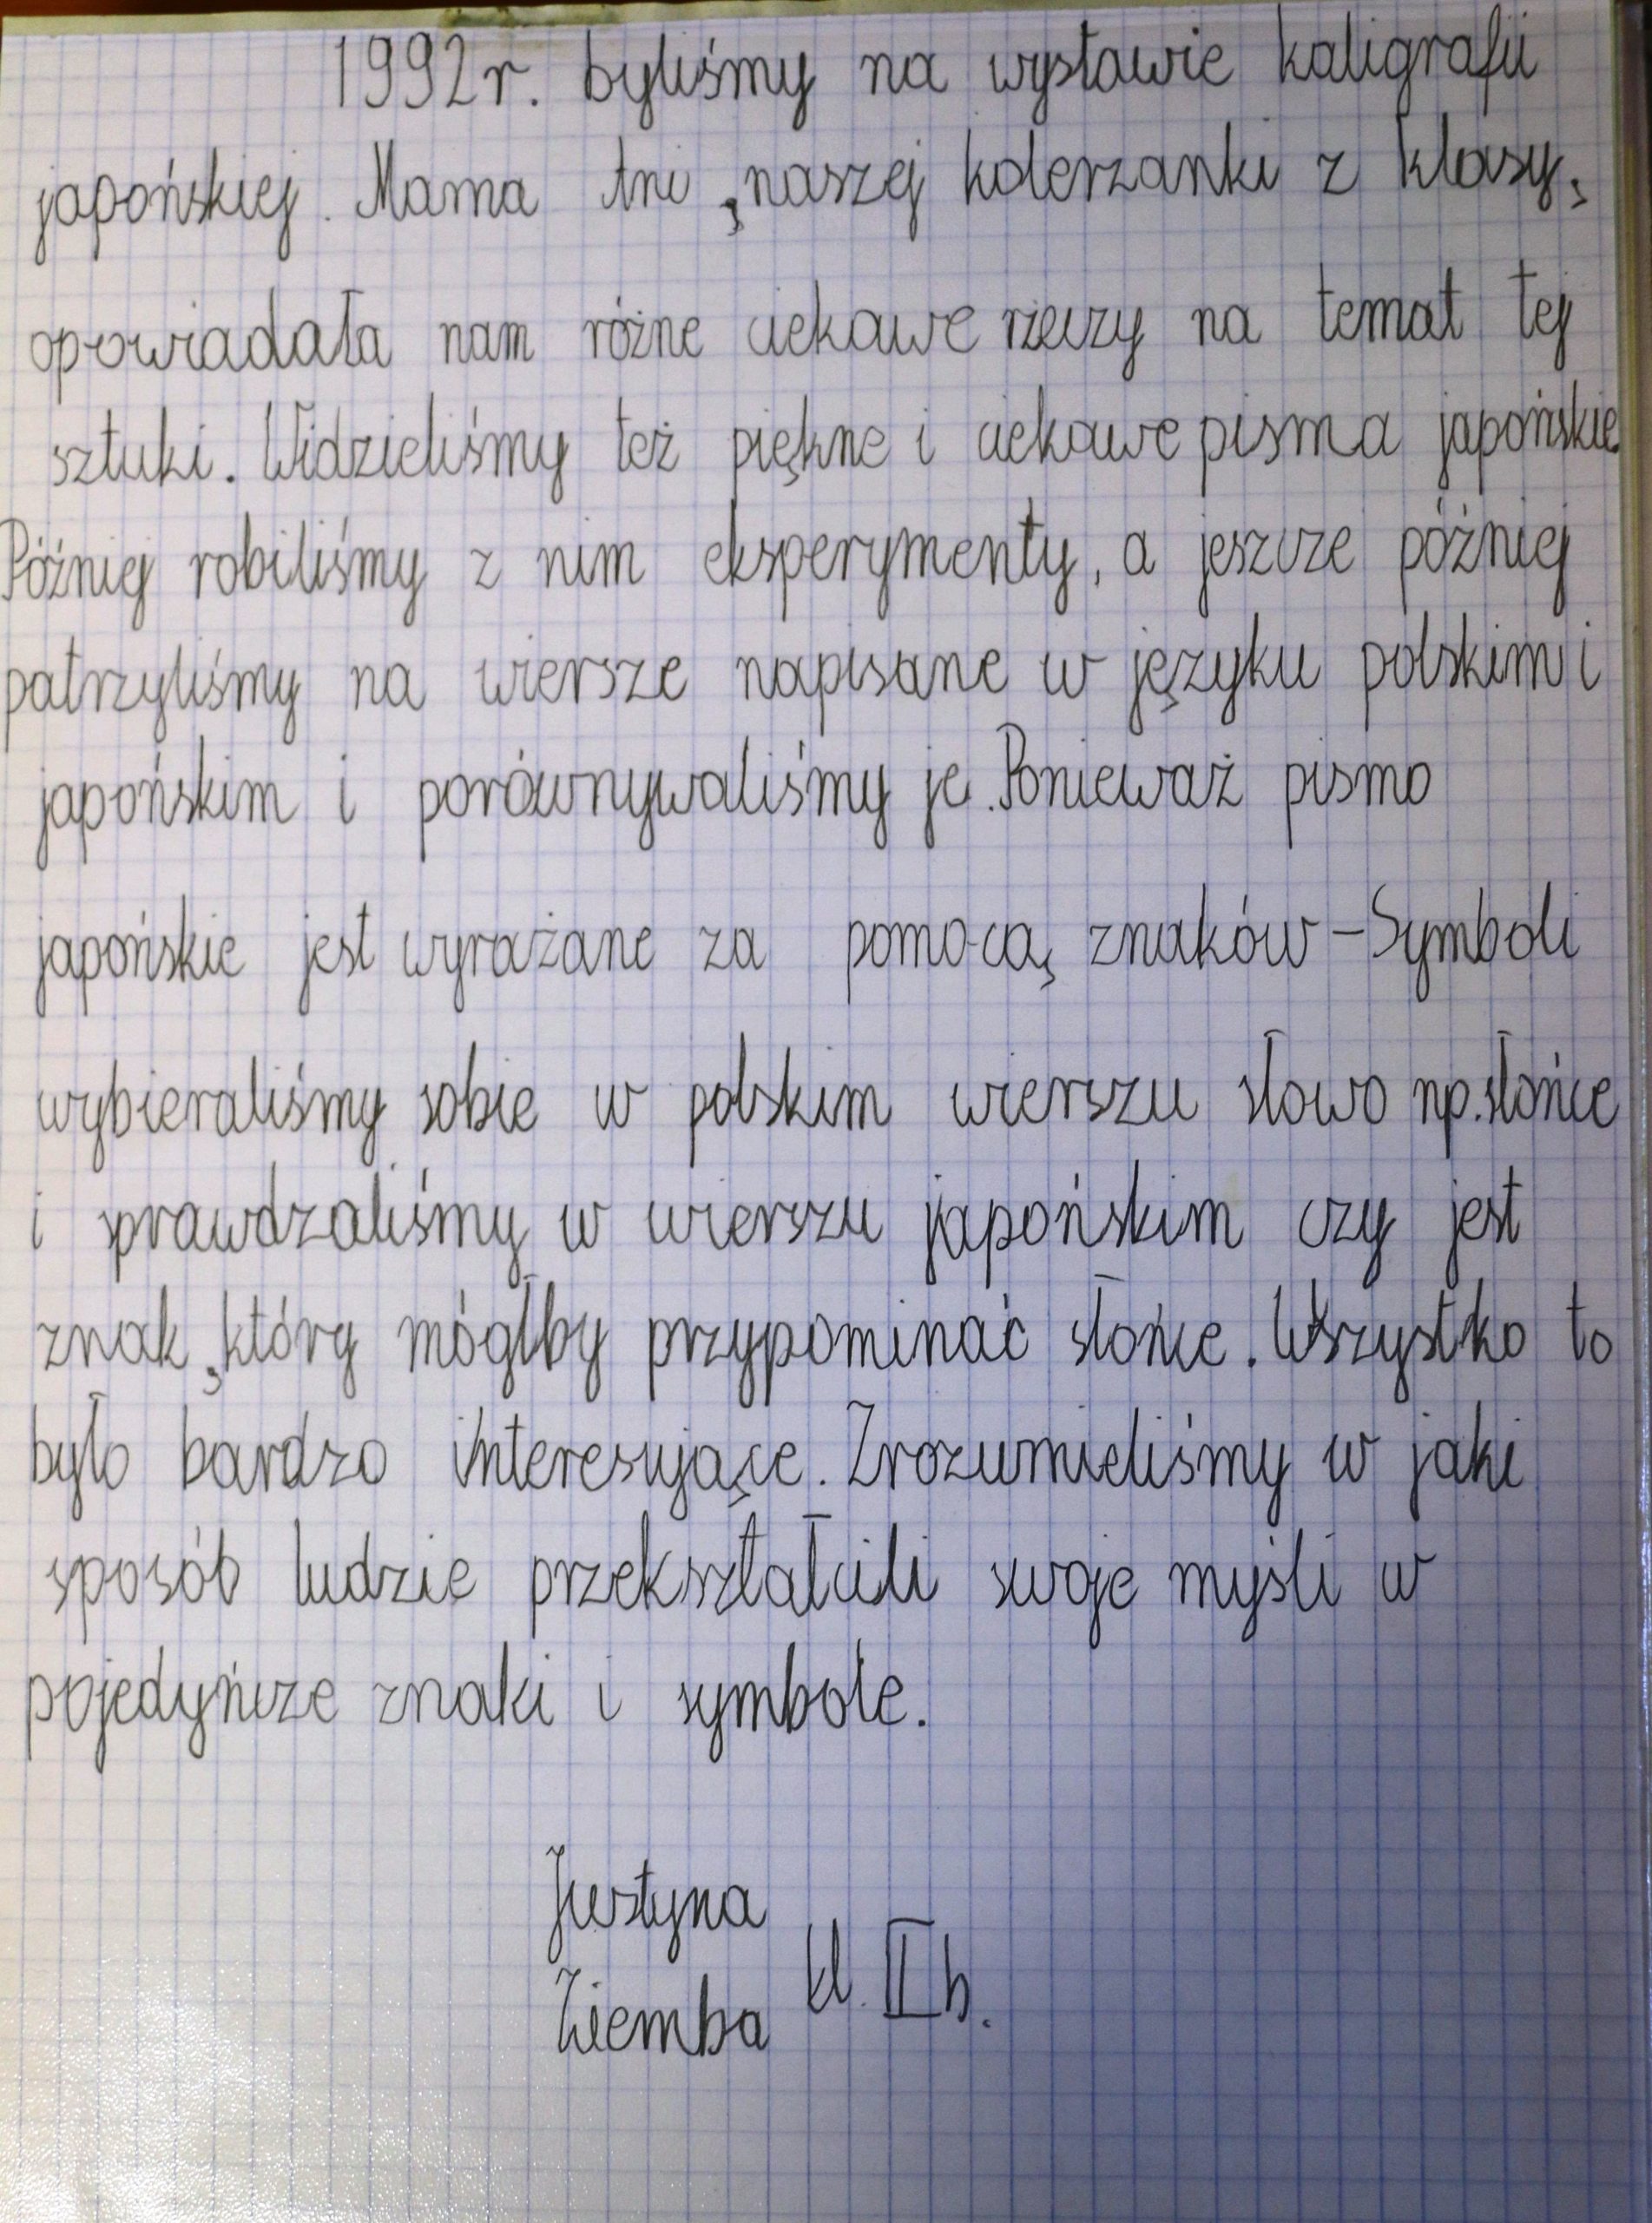 1992r. byliśmy na wystawie kaligrafii
japońskiej. Mama Ani, naszej kolerzanki z klasy,
opowiadała nam różne ciekawe rzeczy na temat tej
sztuki. Widzieliśmy też piękne i ciekawe pisma japońskie.
Później robiliśmy z nim eksperymenty, a jeszcze później
patrzyliśmy na wiersze napisane w języku polskim i
japońskim i porównywaliśmy je. Ponieważ pismo
japońskie jest wyrażane za pomocą znaków - Symboli
wybieraliśmy sobie w polskim wierszu słowo np. słońce
i sprawdzaliśmy w wierszu japońskim czy jest
znak, który mógłby przypominać słońce. Wszystko to
było bardzo interesujące. Zrozumieliśmy w jaki
sposób ludzie przekształcili swoje myśli w
pojedyńcze znaki i symbole.
Justyna
Ziemba kl. II b.